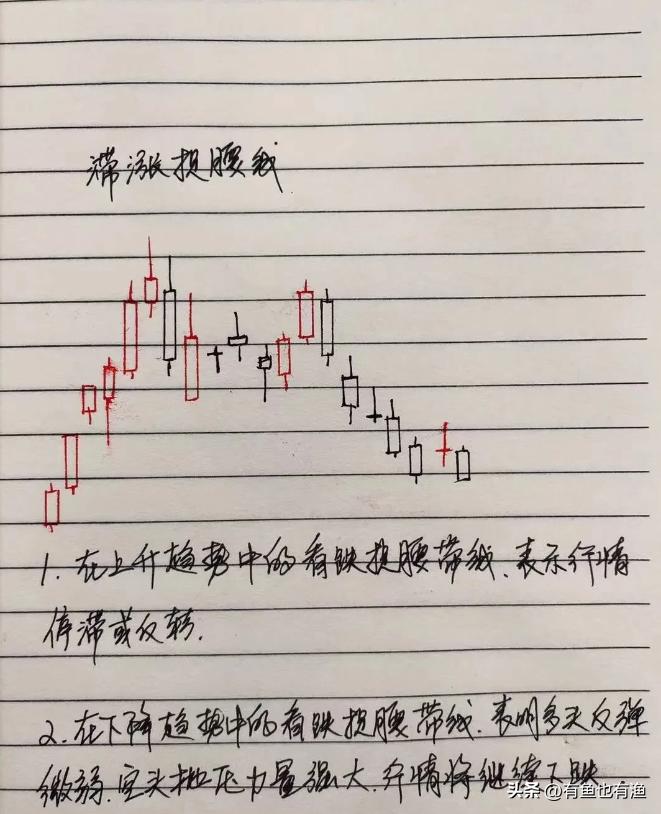 滞涨捉腰线
1. 在上升趋势中的看跌捉腰带线、表示行情
停滞或反转.
2. 在下降趋势中的看跌捉腰带线、表明多头反弹
微弱、空头抛压力量强大、行情将继续下跌.
头条 @有鱼也有渔